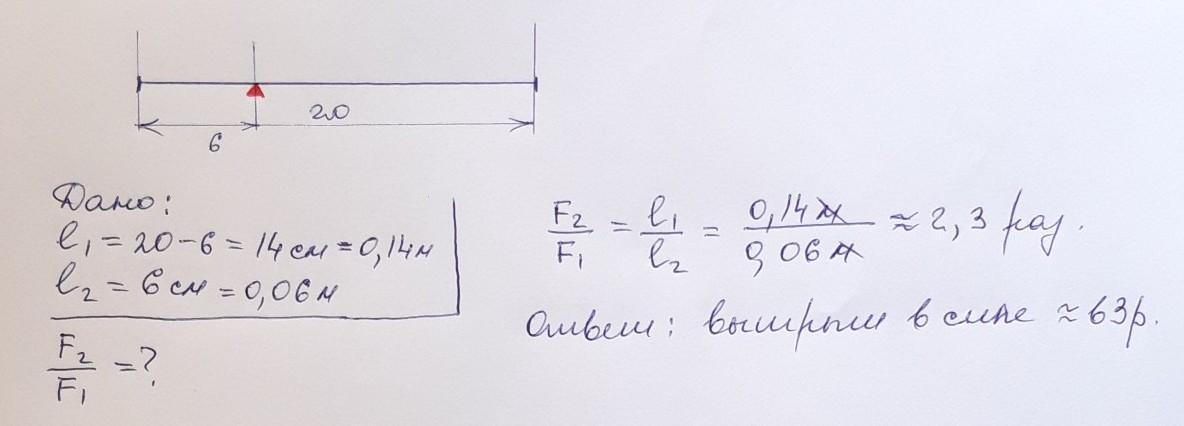 20
6
Дано:
l₁ = 20 - 6 = 14 см = 0,14 м
l₂ = 6 см = 0,06 м
F₂/F₁ = ?
F₂/F₁ = l₁/l₂ = 0,14 м/0,06 м ≈ 2,3 раз.
Ответ: выигрыш в силе ≈ 63р.